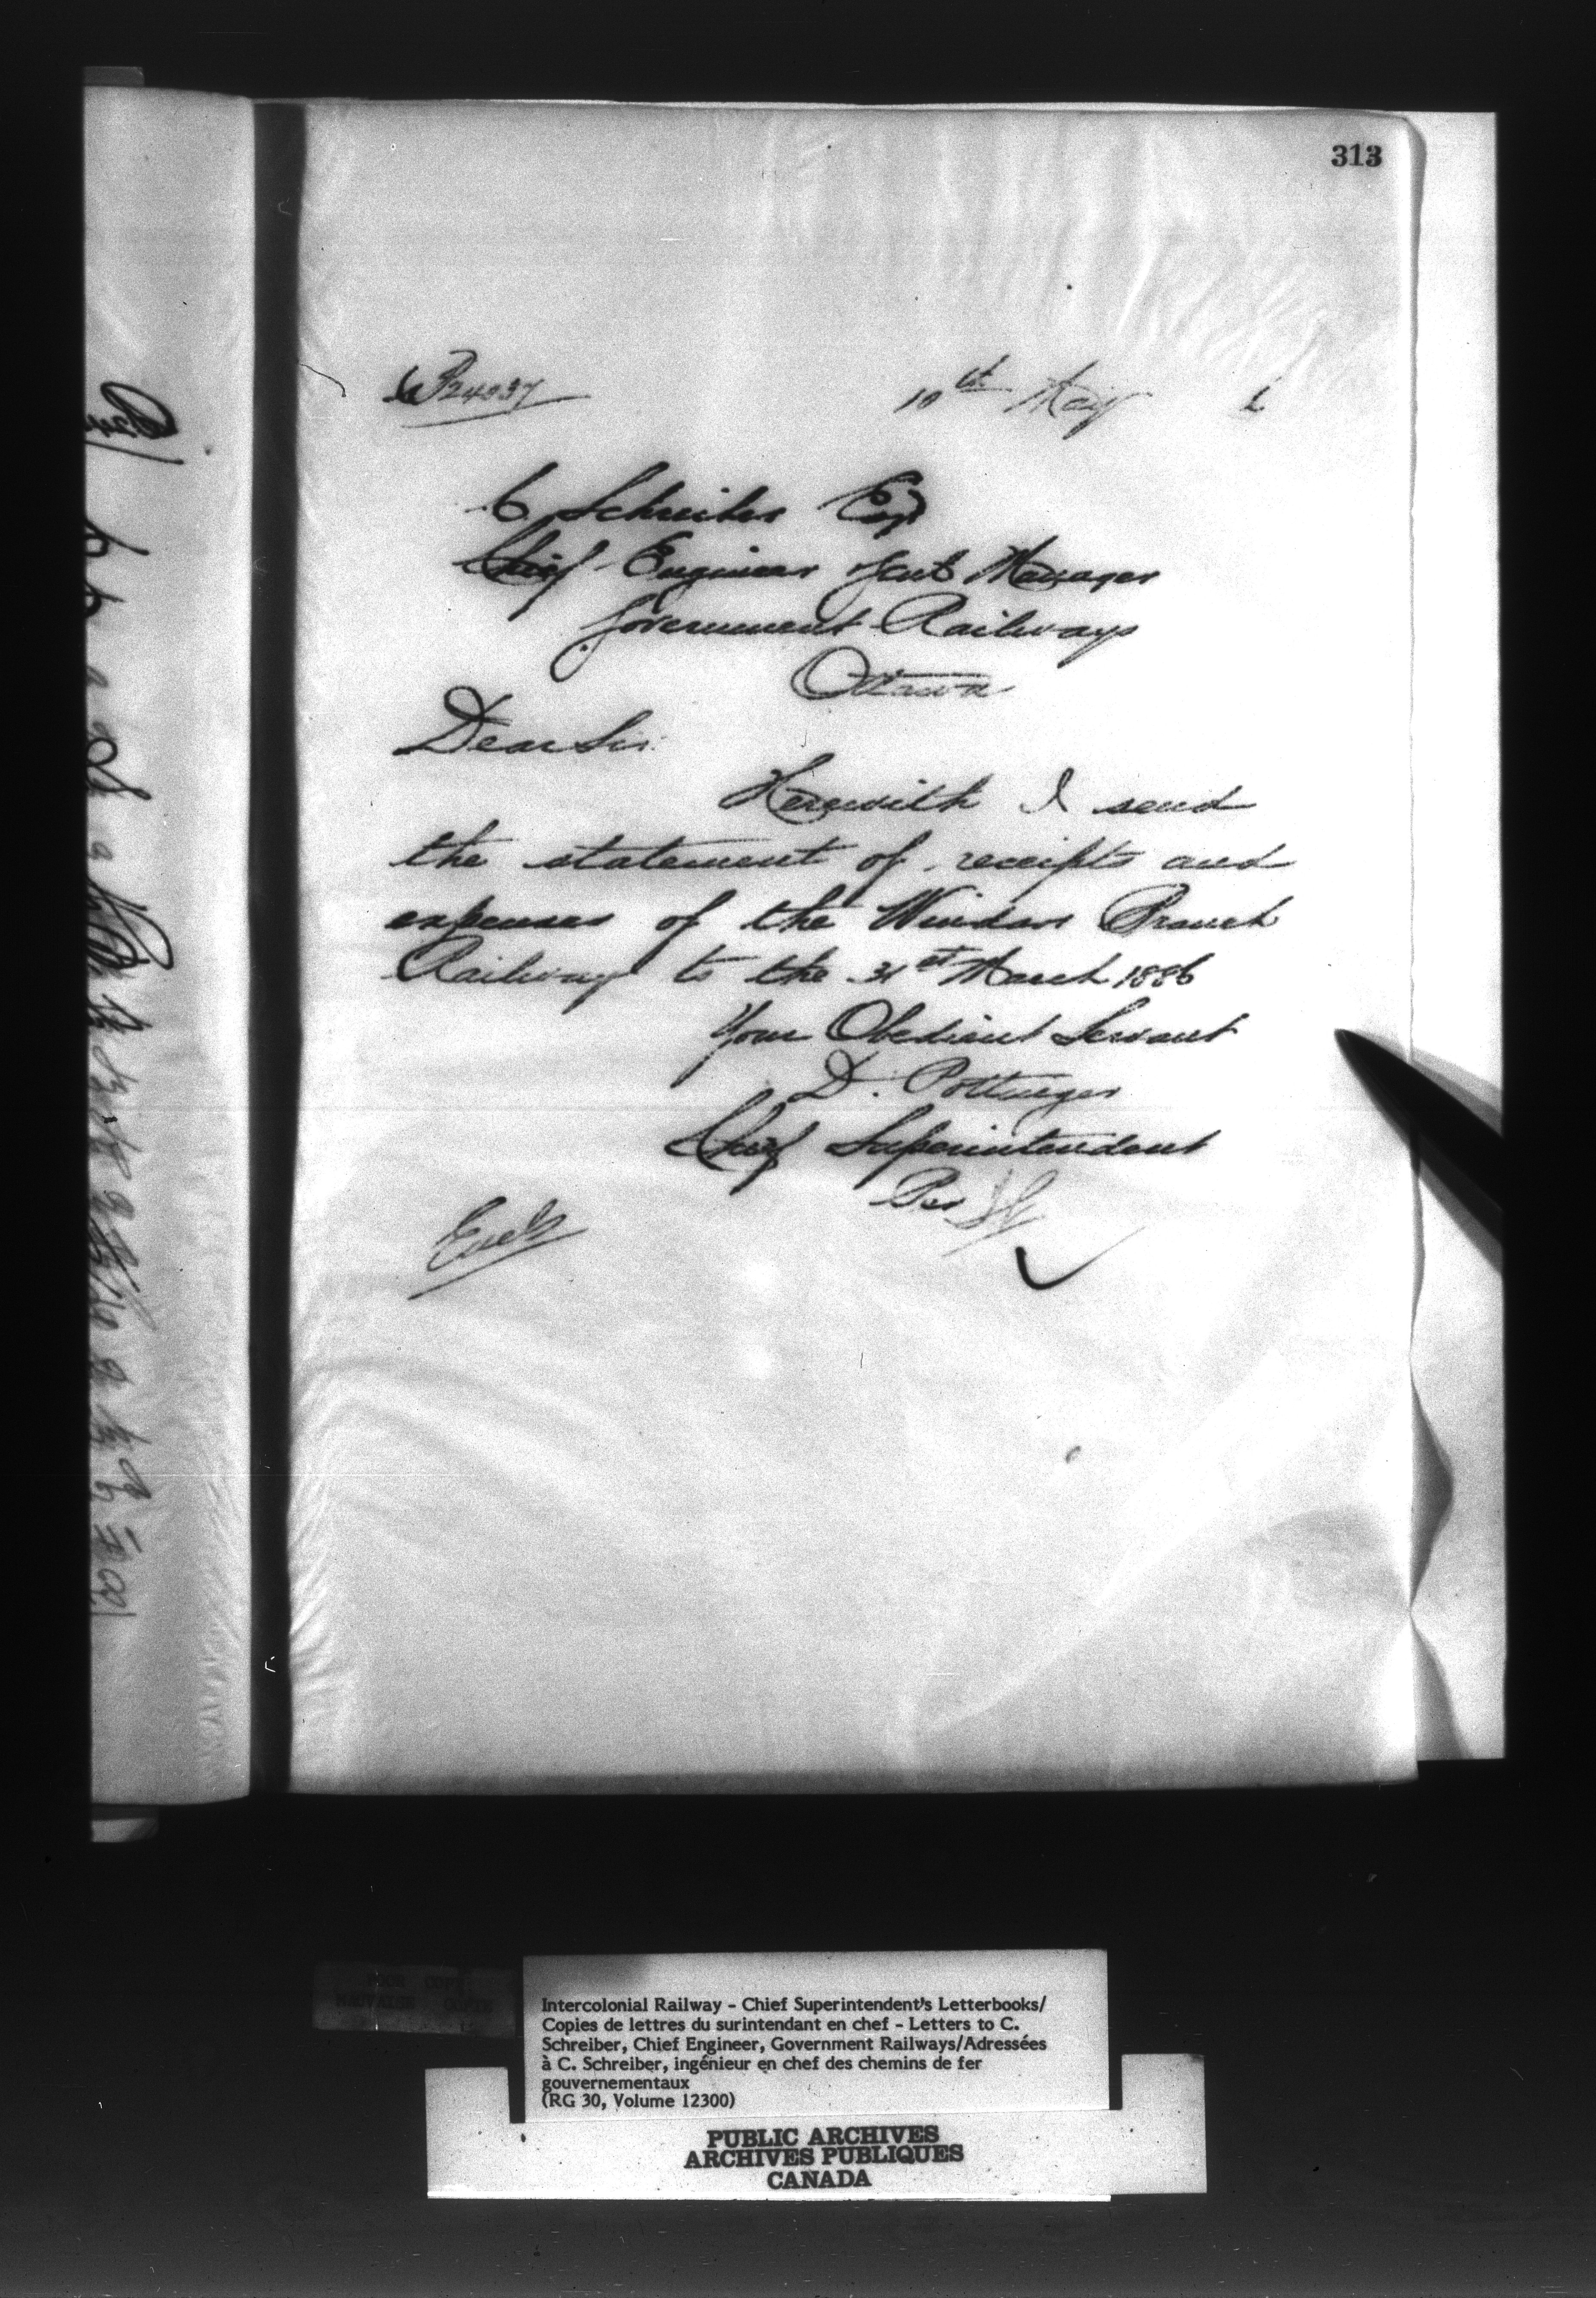 313
24037
10th May 6
C Schreiber Esq
Chief Engineer & Genl Manager
Government Railways
Ottawa
Dear Sir
Herewith I send
the statement of receipts and
expenses of the Windsor Branch
Railway to the 31st March 1886
Your Obedient Servant
D. Pottinger
Chief Superintendent
Per
Encls
Intercolonial Railway - Chief Superintendent's Letterbooks/
Copies de lettres du surintendant en chef - Letters to C.
Schreiber, Chief Engineer, Government Railways/Adressées
à C. Schreiber, ingénieur en chef des chemins de fer
gouvernementaux
(RG 30, Volume 12300)
PUBLIC ARCHIVES
ARCHIVES PUBLIQUES
CANADA